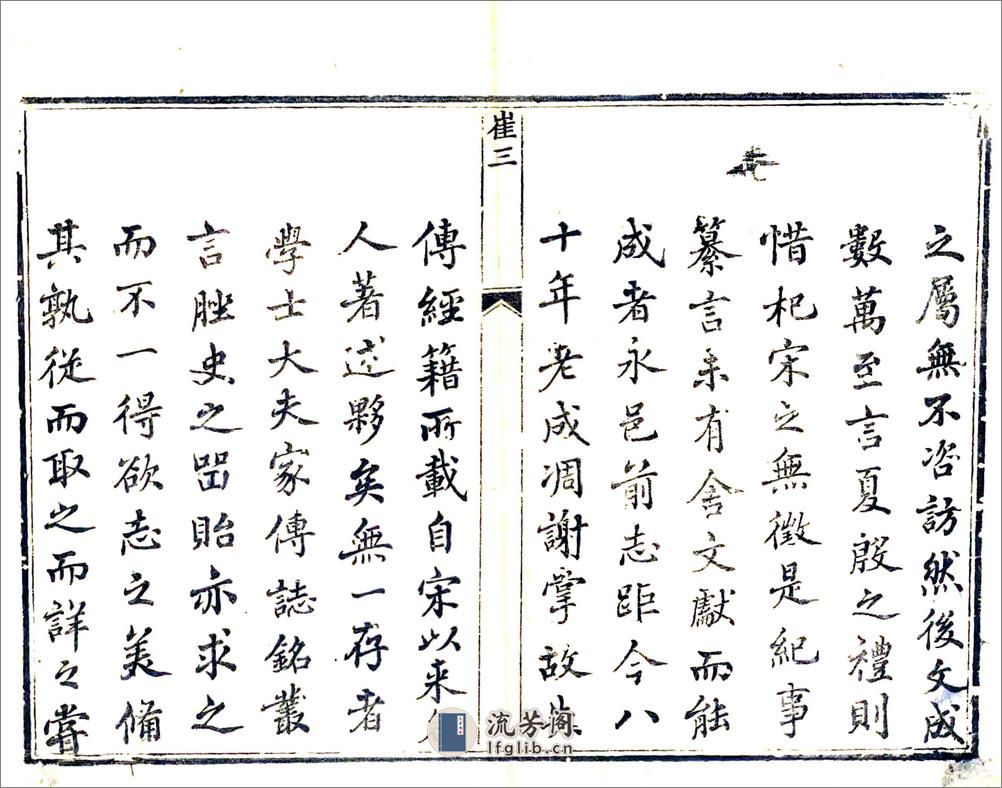 之屬無不咨訪然後文成
數萬至言夏殷之禮則
惜杞宋之無徵是紀事
纂言未有舍文獻而能
成者永邑前志距今八
十年老成凋謝掌故
崔三
傳經籍所載自宋以来
人著述夥矣無一存者
學士大夫家傳誌銘叢
言脞史之留貽亦求之
而不一得欲志之美備
其孰從而取之而詳之嘗
流芳阁
lfglib.cn